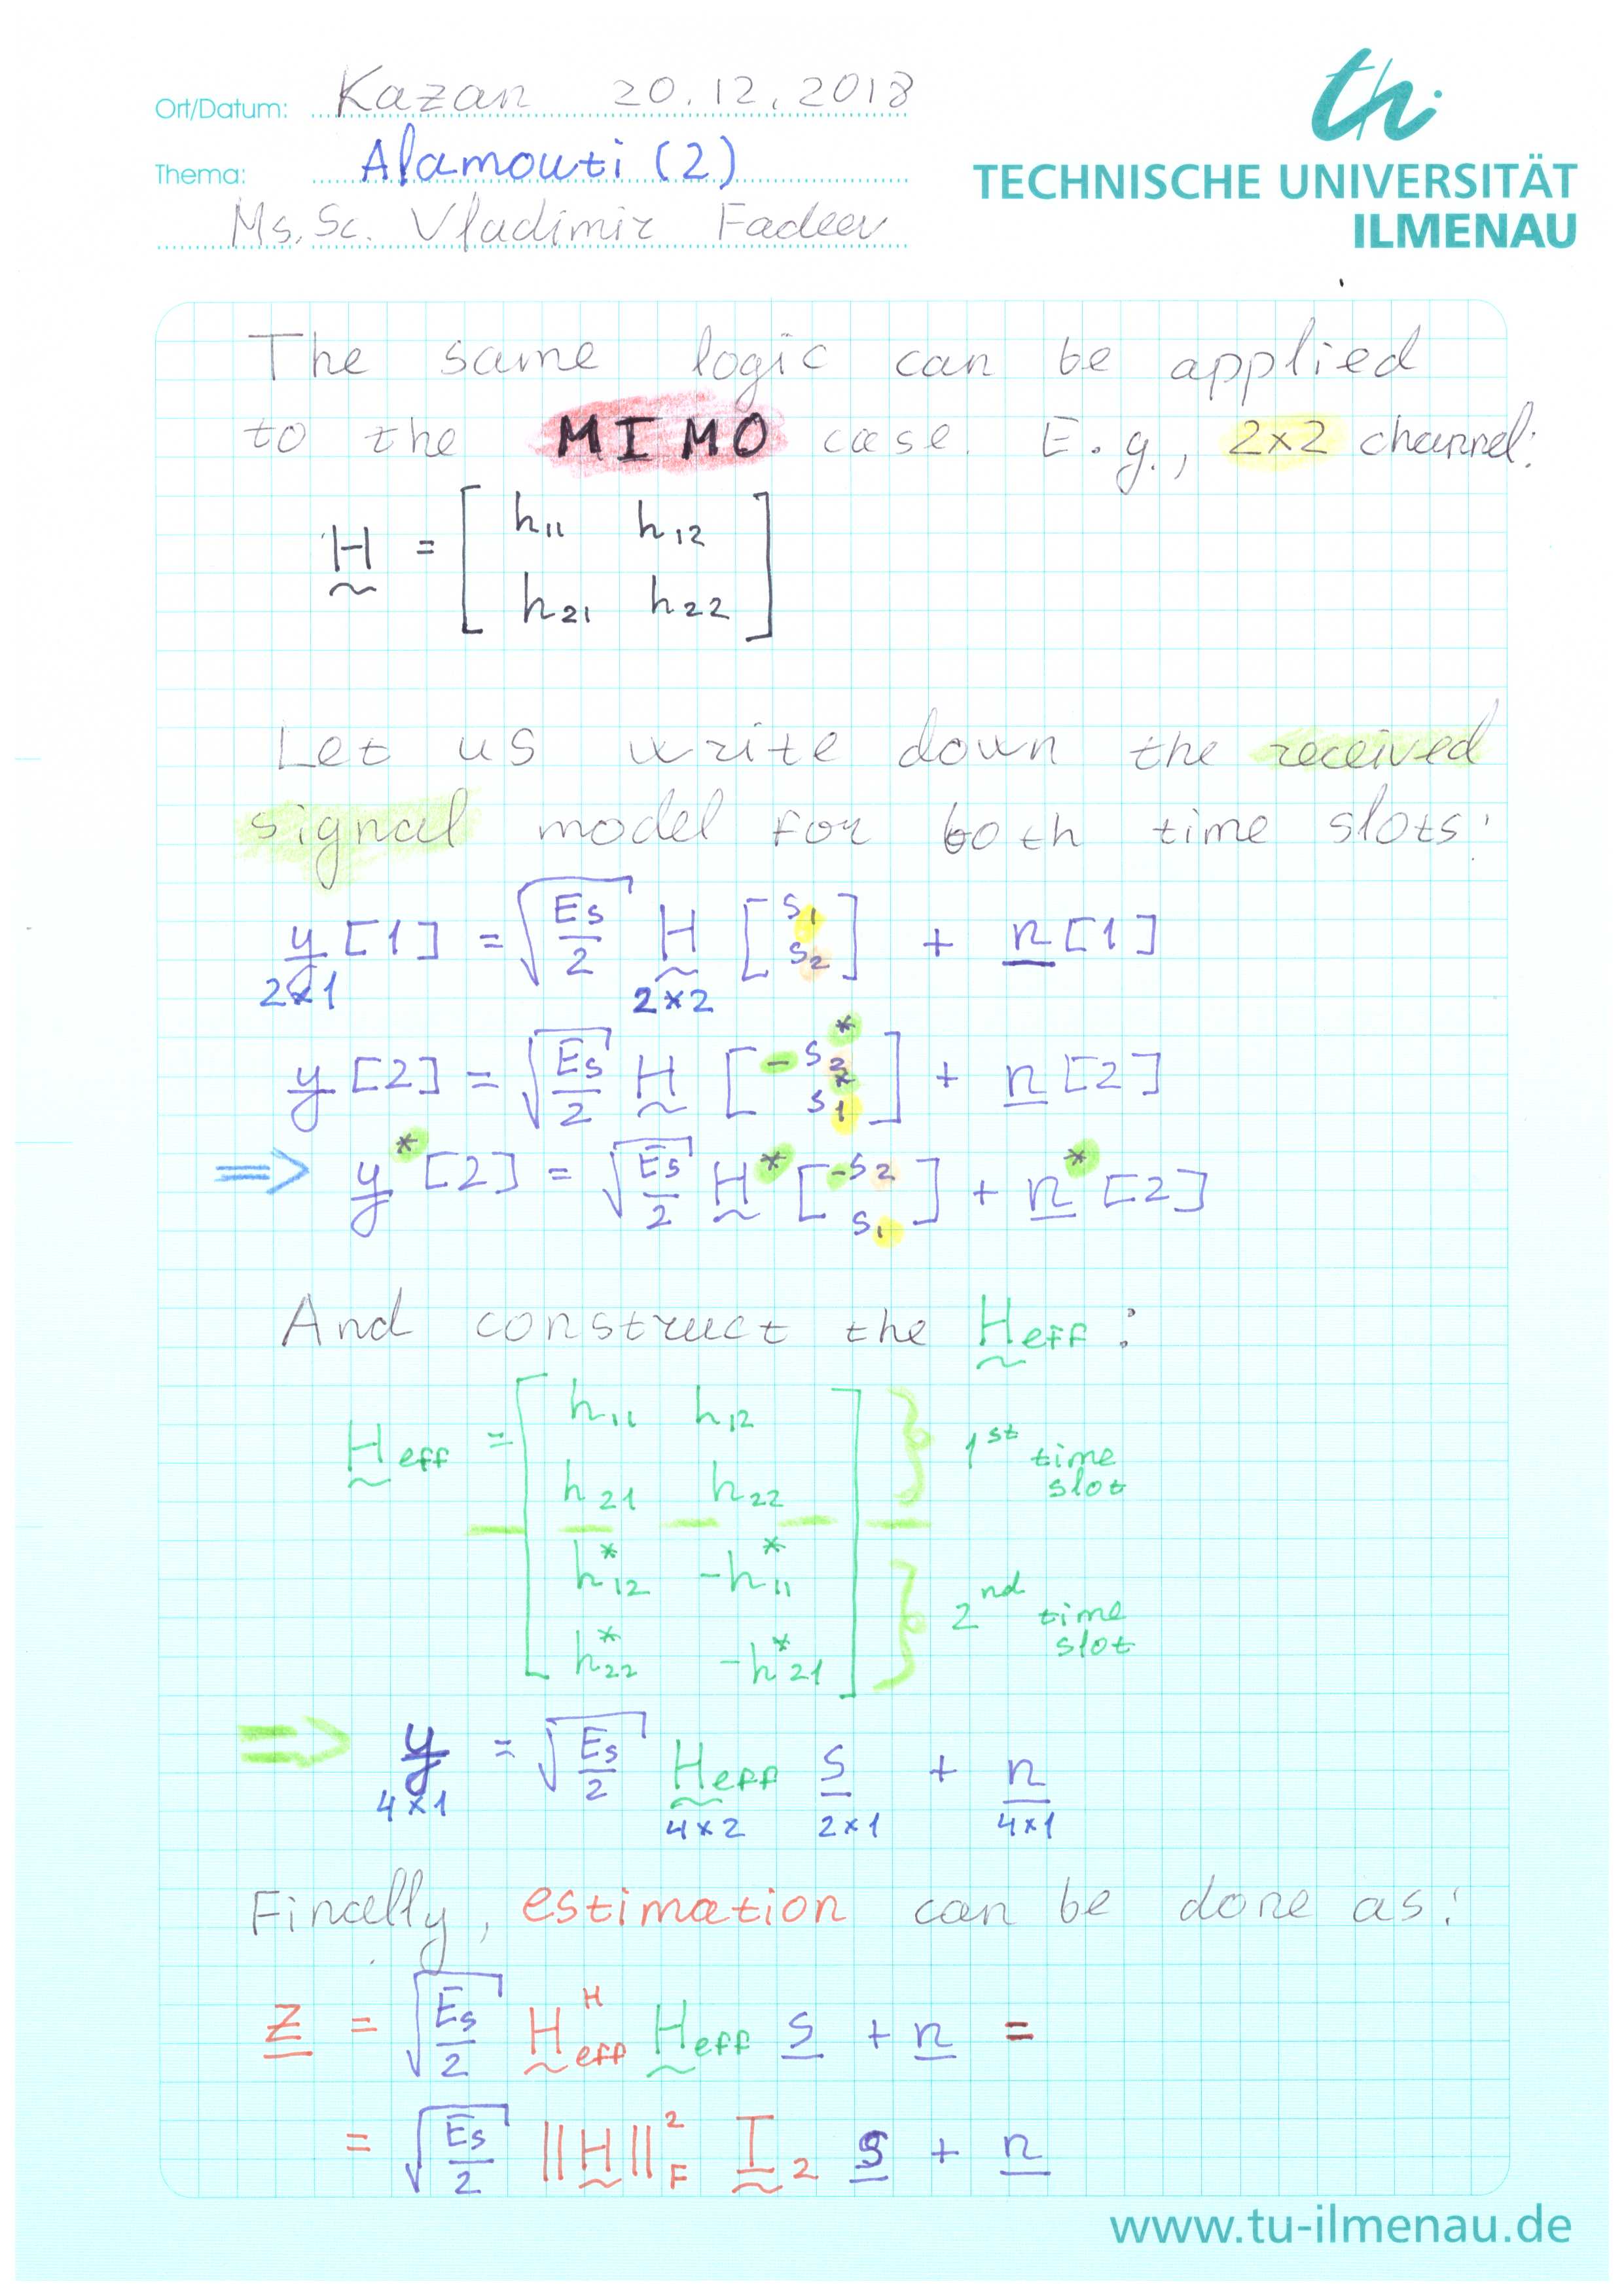 Ort/Datum: Kazan 20.12.2018
Thema: Alamouti (2)
Ms.Sc. Vladimir Fadeev
th
TECHNISCHE UNIVERSITÄT
ILMENAU
The same logic can be applied
to the MIMO case. E.g., 2x2 channel:
H = [ h₁₁ h₁₂
h₂₁ h₂₂ ]
Let us write down the received
signal model for both time slots:
y[1] = √(Es/2) H [ s₁ s₂ ] + n[1]
2x1 2x2
y[2] = √(Es/2) H [ -s₂* s₁* ] + n[2]
⇒ y*[2] = √(Es/2) H* [ -s₂ s₁ ] + n*[2]
And construct the Heff:
Heff = [ h₁₁ h₁₂ } 1st time slot
h₂₁ h₂₂
h₁₂* -h₁₁* } 2nd time slot
h₂₂* -h₂₁* ]
⇒ y = √(Es/2) Heff s + n
4x1 4x2 2x1 4x1
Finally, estimation can be done as:
z = √(Es/2) Heff^H Heff s + n =
= √(Es/2) ||H||²F I₂ s + n
www.tu-ilmenau.de